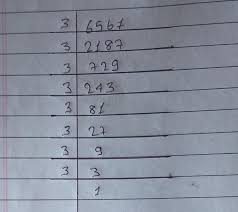 3 6561
3 2187
3 729
3 243
3 81
3 27
3 9
3 3
1